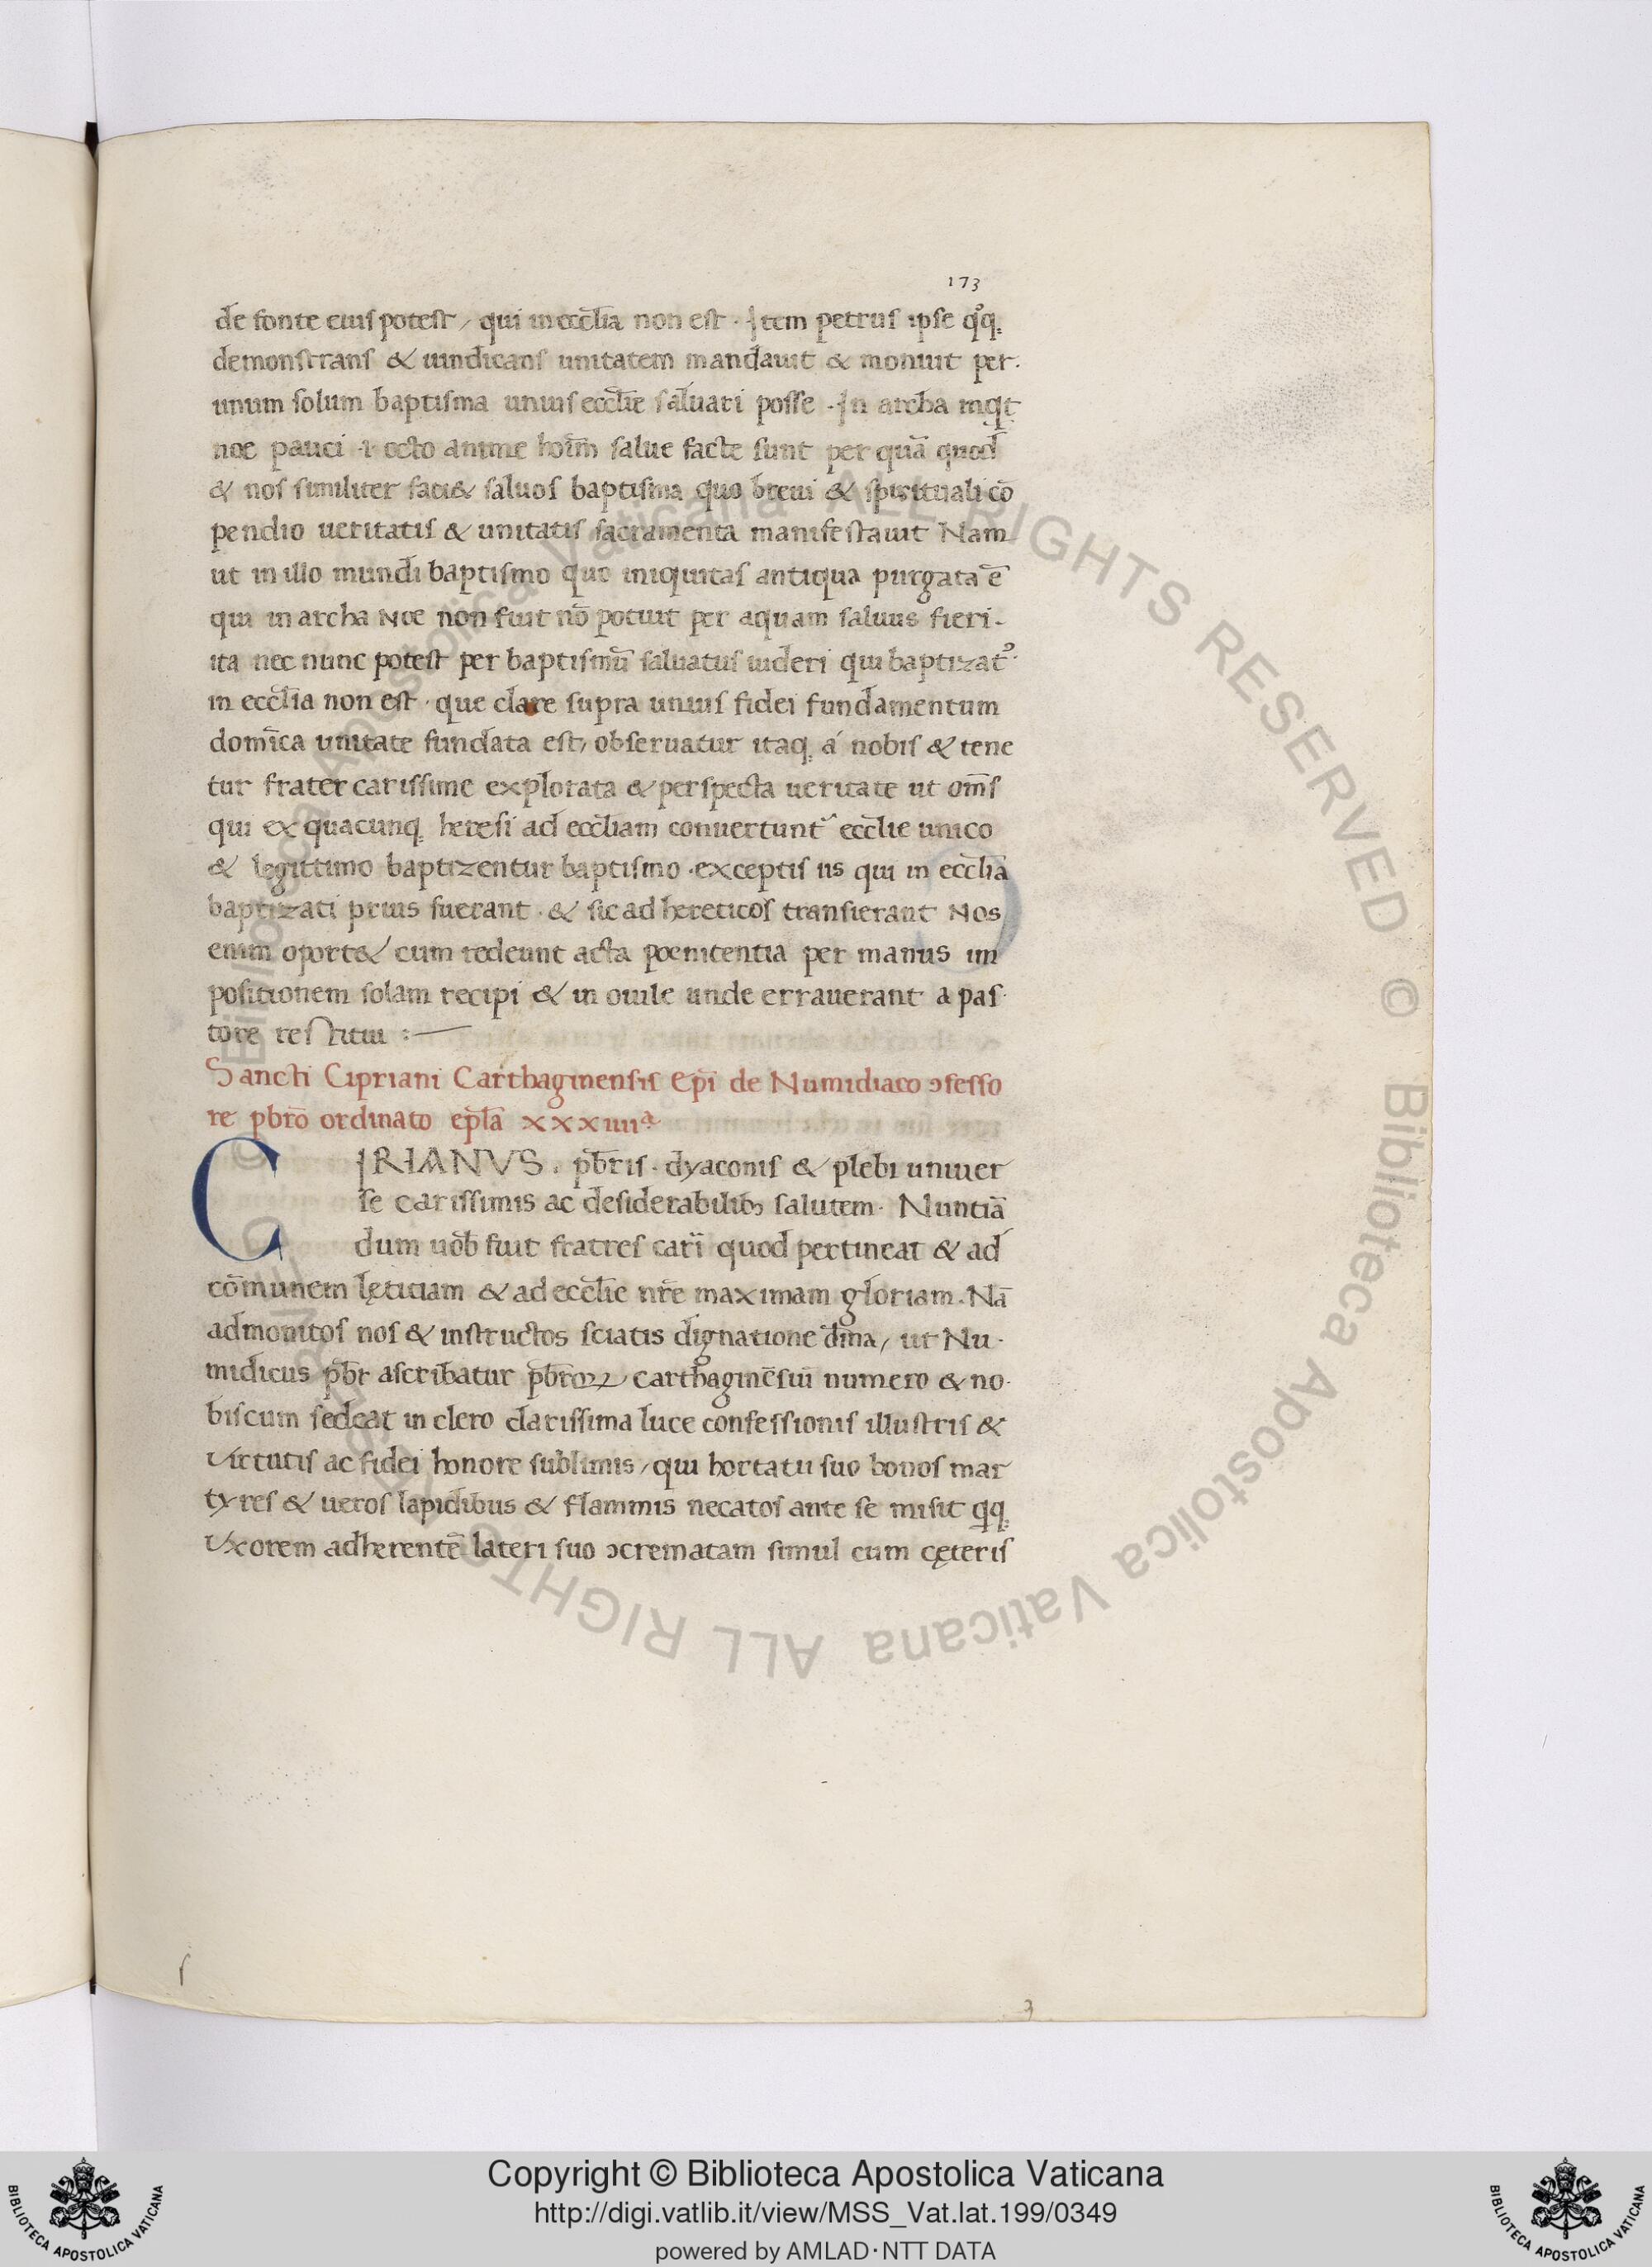 173
de fonte eius potest, qui in ecc̄lia non est · Item petrus ipse qͦq.
demonstrans & uindicans unitatem mandauit & monuit per·
unum solum baptisma unius ecc̄lie saluari posse · In archa inq̄t
noe pauci ·i· octo anime hoīm salue facte sunt per quā quod
& nos similiter faci& saluos baptisma quo breui & spirituali cō
pendio ueritatis & unitatis sacramenta manifestauit Nam
ut in illo mundi baptismo quo iniquitas antiqua purgata ē
qui in archa Noe non fuit nō potuit per aquam saluus fieri-
ita nec nunc potest per baptismū saluatus uideri qui baptizatꝰ·
in ecc̄lia non est · que clare supra unius fidei fundamentum
domīca unitate fundata est, obseruatur itaq. á nobis & tene
tur frater carissime explorata & perspecta ueritate ut om̄s
qui ex quacunq. heresi ad ecc̄liam conuertunt᷑ ecc̄lie unico
& legittimo baptizentur baptismo · exceptis iis qui in ecc̄lia
baptizati prius fuerant · & sic ad hereticos transierant Nos
enim oport& cum redeunt acta poenitentia per manus im
positionem solam recipi & in ouile unde errauerant a pas·
tore restitui :—
Sancti Cipriani Carthaginensis Ep̄i de Numidiaco ɔfesso
re pb̄ro ordinato ep̄la xxxiiiiᵃ
CIRIANVS · pb̄ris · dyaconis & plebi uniuer
se carissimis ac desiderabilibꝫ salutem · Nuntiā
dum uob̄ fuit fratres car̄i quod pertineat & ad
cōmunem lętitiam & ad ecc̄lie nr̄e maximam gloriam · Nā
admonitos nos & instructos sciatis dignatione dīna, ut Nu·
midicus pb̄r ascribatur pb̄roꝝ carthaginēsiū numero & no·
biscum sedeat in clero clarissima luce confessionis illustris &
virtutis ac fidei honore sublimis, qui hortatu suo bonos mar
tyres & ueros lapidibus & flammis necatos ante se misit qq.
vxorem adherentē lateri suo ɔcrematam simul cum cęteris
© Biblioteca Apostolica Vaticana ALL RIGHTS RESERVED © Biblioteca Apostolica Vaticana ALL RIGHTS RESERVED
Copyright © Biblioteca Apostolica Vaticana
http://digi.vatlib.it/view/MSS_Vat.lat.199/0349
powered by AMLAD·NTT DATA
BIBLIOTECA APOSTOLICA VATICANA
BIBLIOTECA APOSTOLICA VATICANA